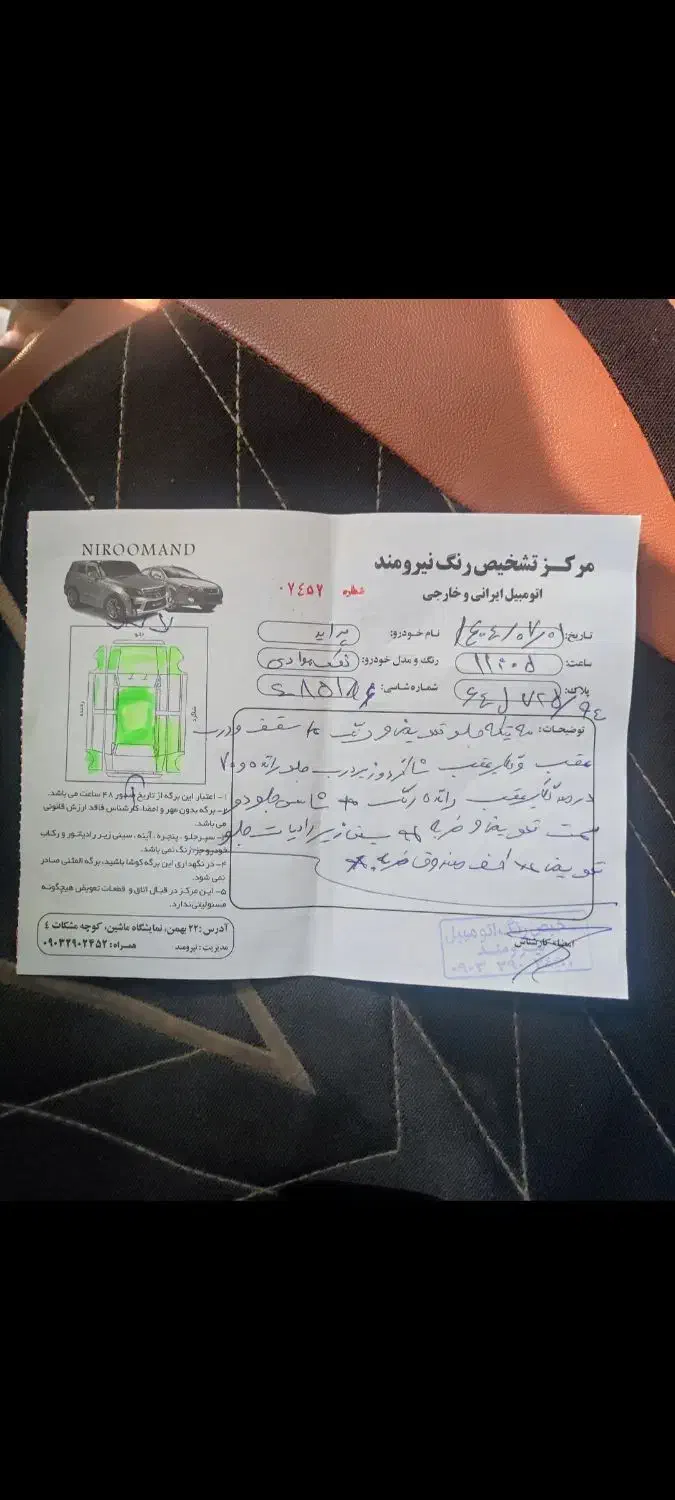 NIROOMAND
مرکز تشخیص رنگ نیرومند
اتومبیل ایرانی و خارجی
شماره ۰۷٤٥٢
تاریخ: ۱٤۰٤/۰۷/۰۱
نام خودرو: پراید
ساعت:
رنگ و مدل خودرو: نوک مدادی
پلاک:
شماره شاسی:
جلو
راننده
شاگرد
توضیحات: سه تیکه جلو تعویض و رنگ سقف و درب
عقب و گلگیر عقب شاگرد و زیر درب جلو راننده و ۷۰
درصد گلگیر عقب راننده رنگ شاسی جلو دو
سمت تعویض و ضربه سینی زیر رادیات جلو
تعویض کف صندوق ضربه
۱- اعتبار این برگه از تاریخ صدور ۴۸ ساعت می باشد.
۲- برگه بدون مهر و امضا کارشناس فاقد ارزش قانونی
می باشد.
۳- سپر جلو، پنجره، آینه، سینی زیر رادیاتور و رکاب
خودرو جزء رنگ نمی باشد.
۴- در نگهداری این برگه کوشا باشید، برگه المثنی صادر
نمی شود.
۵- این مرکز در قبال اتاق و قطعات تعویض هیچگونه
مسئولیتی ندارد.
آدرس: ۲۲ بهمن، نمایشگاه ماشین، کوچه مشکات ٤
مدیریت: نیرومند همراه: ۰۹۰۳۲۹۰۲۴۵۲
امضاء کارشناس
تشخیص رنگ اتومبیل
نیرومند